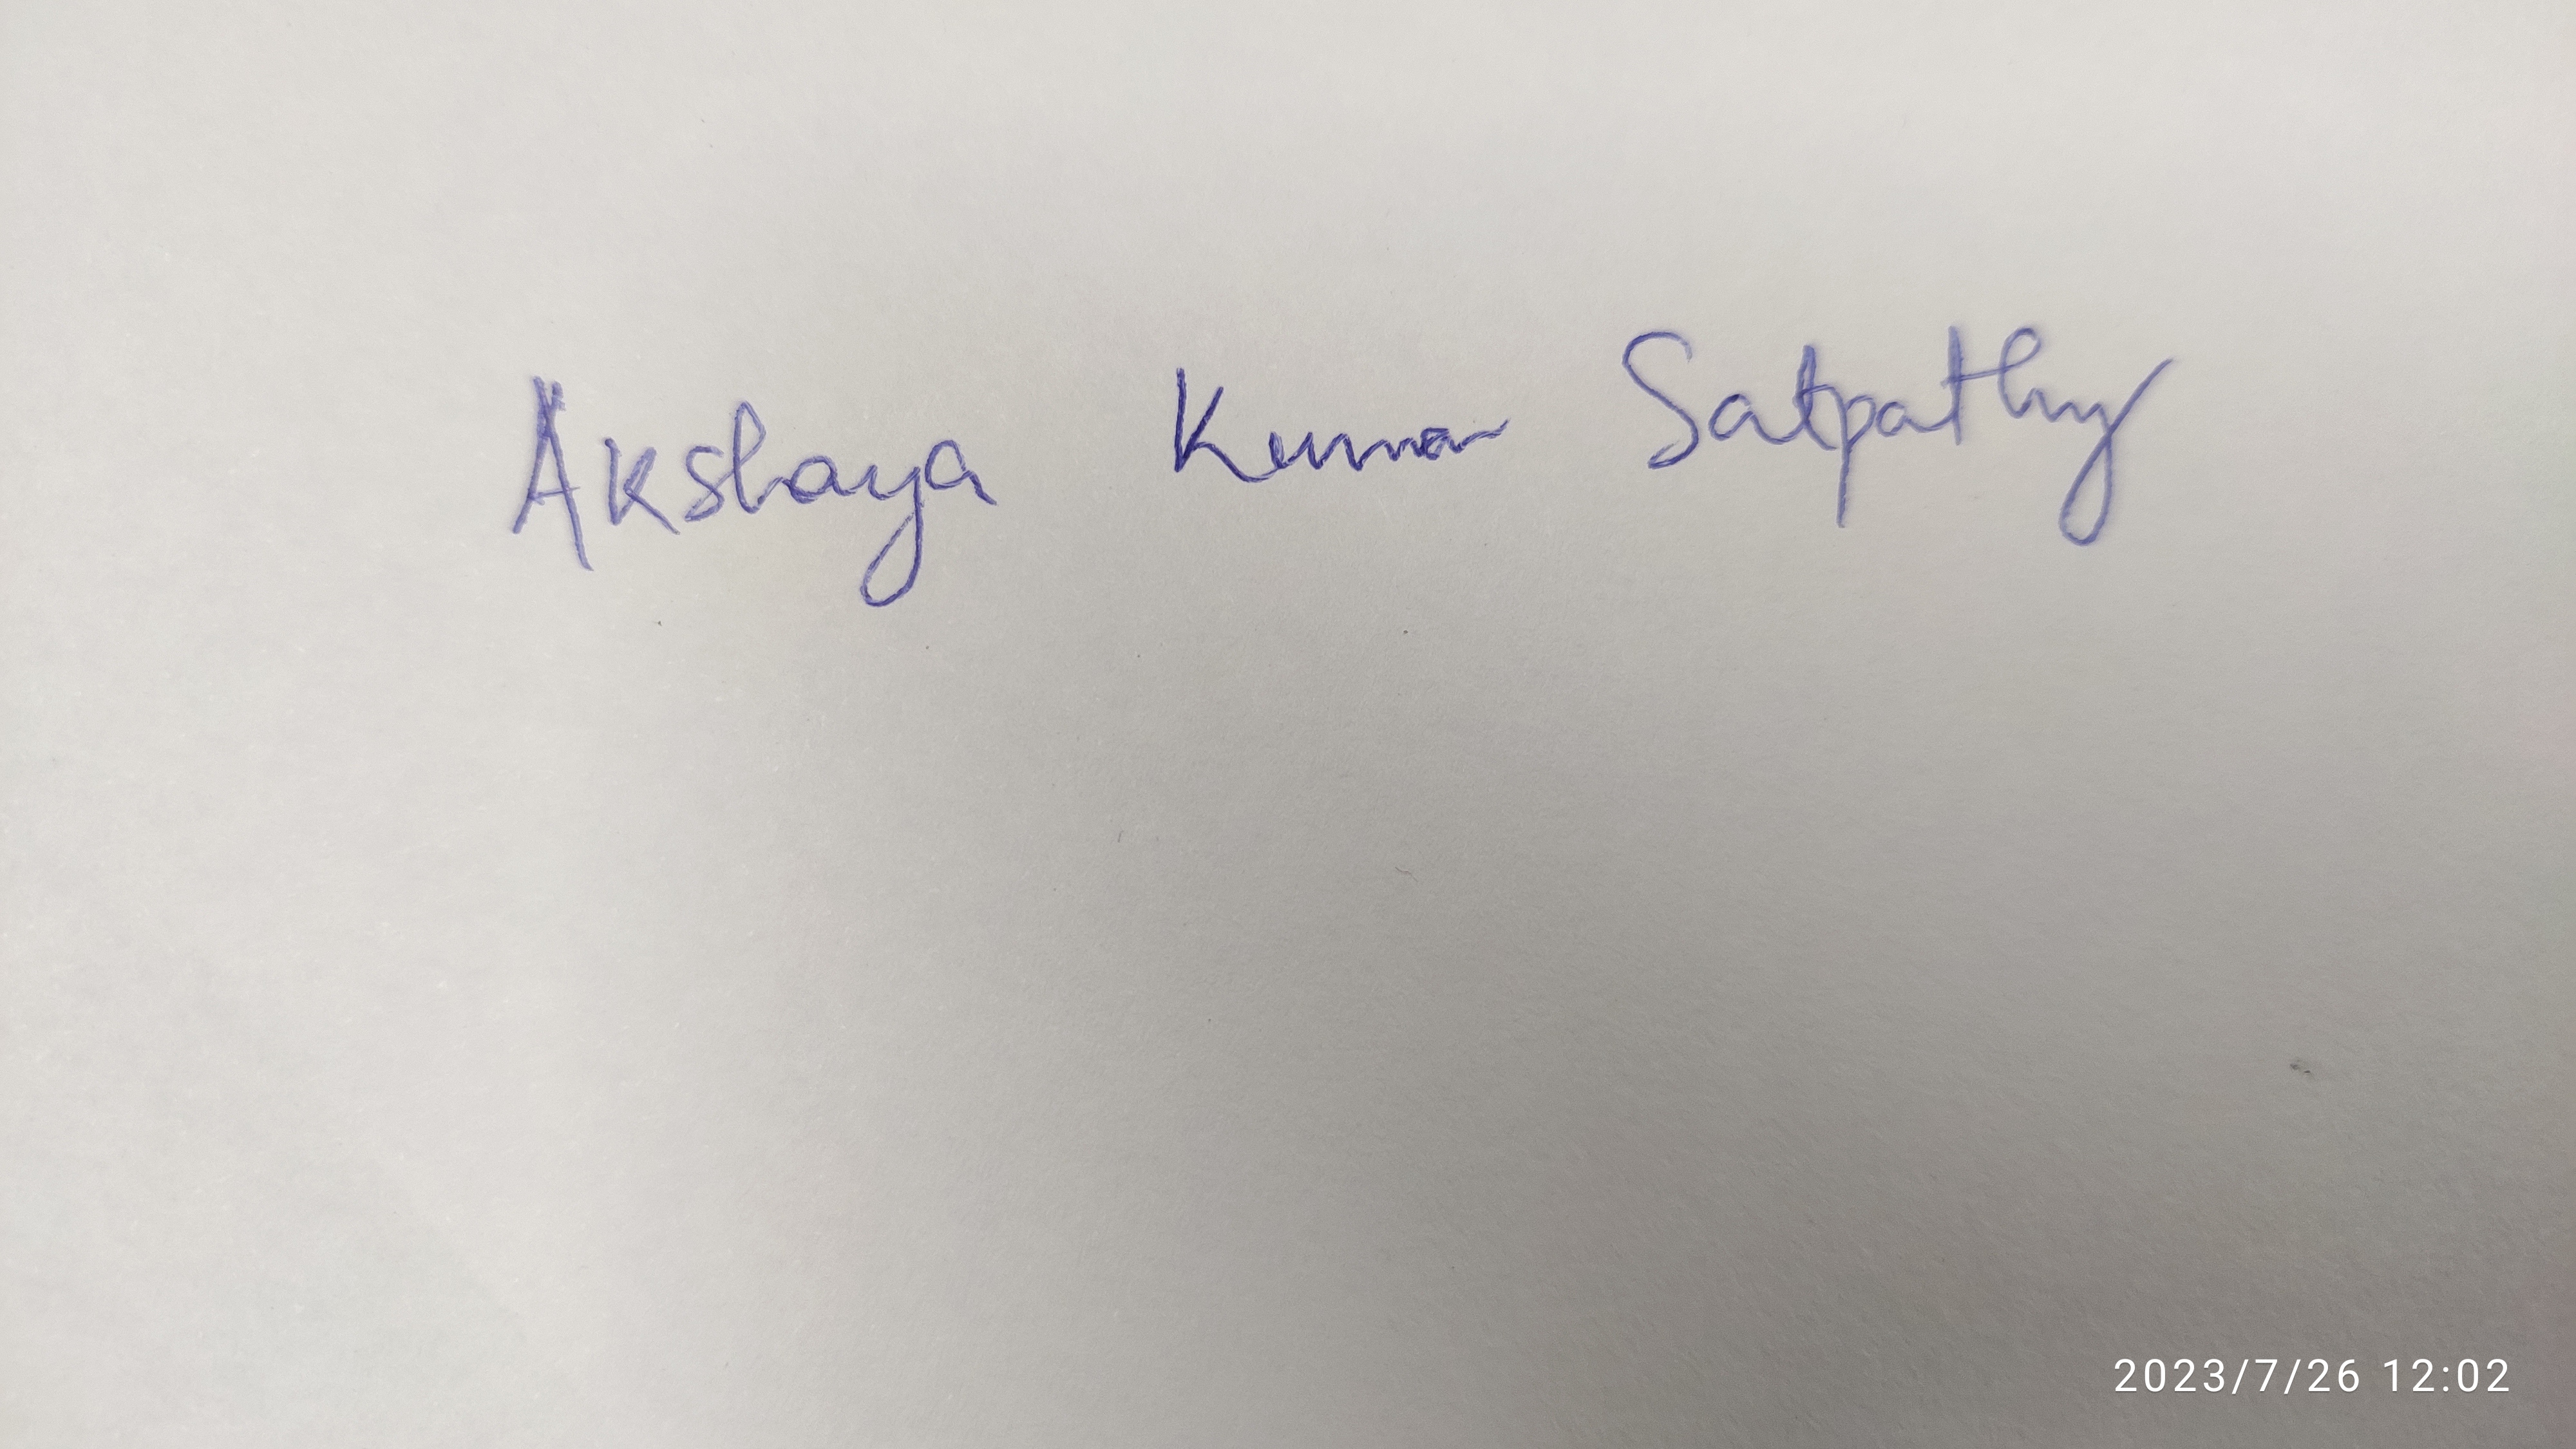 Akshaya Kumar Satpathy
2023/7/26 12:02